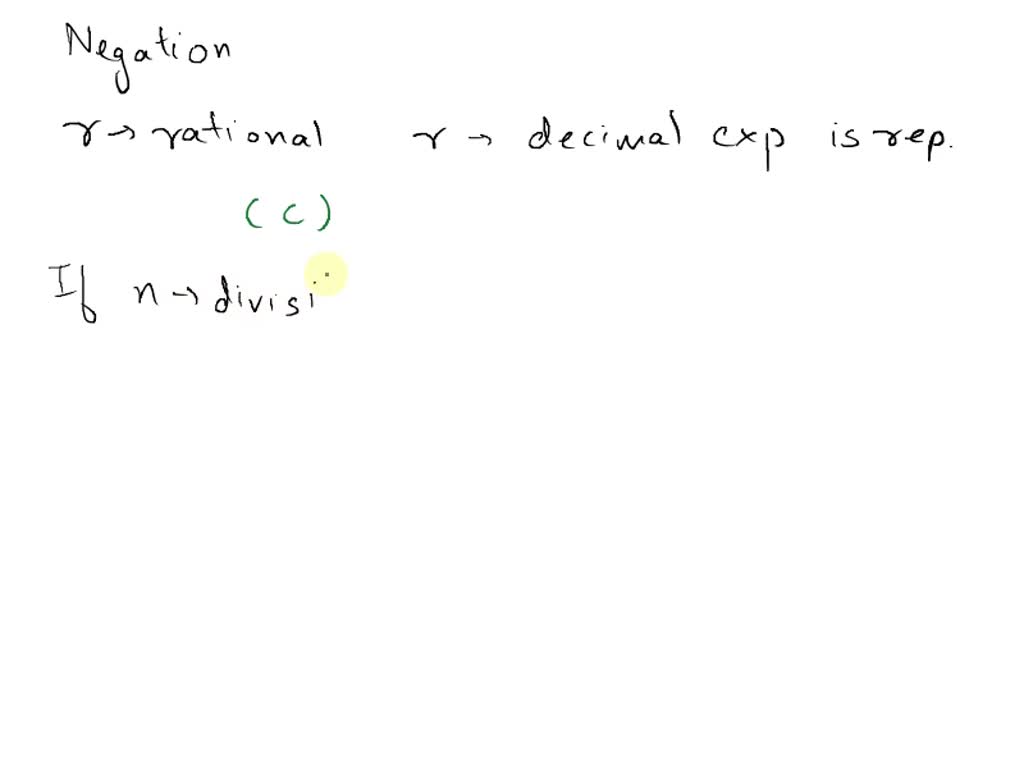 Negation
r → rational r → decimal exp is rep.
(c)
If n → divisi